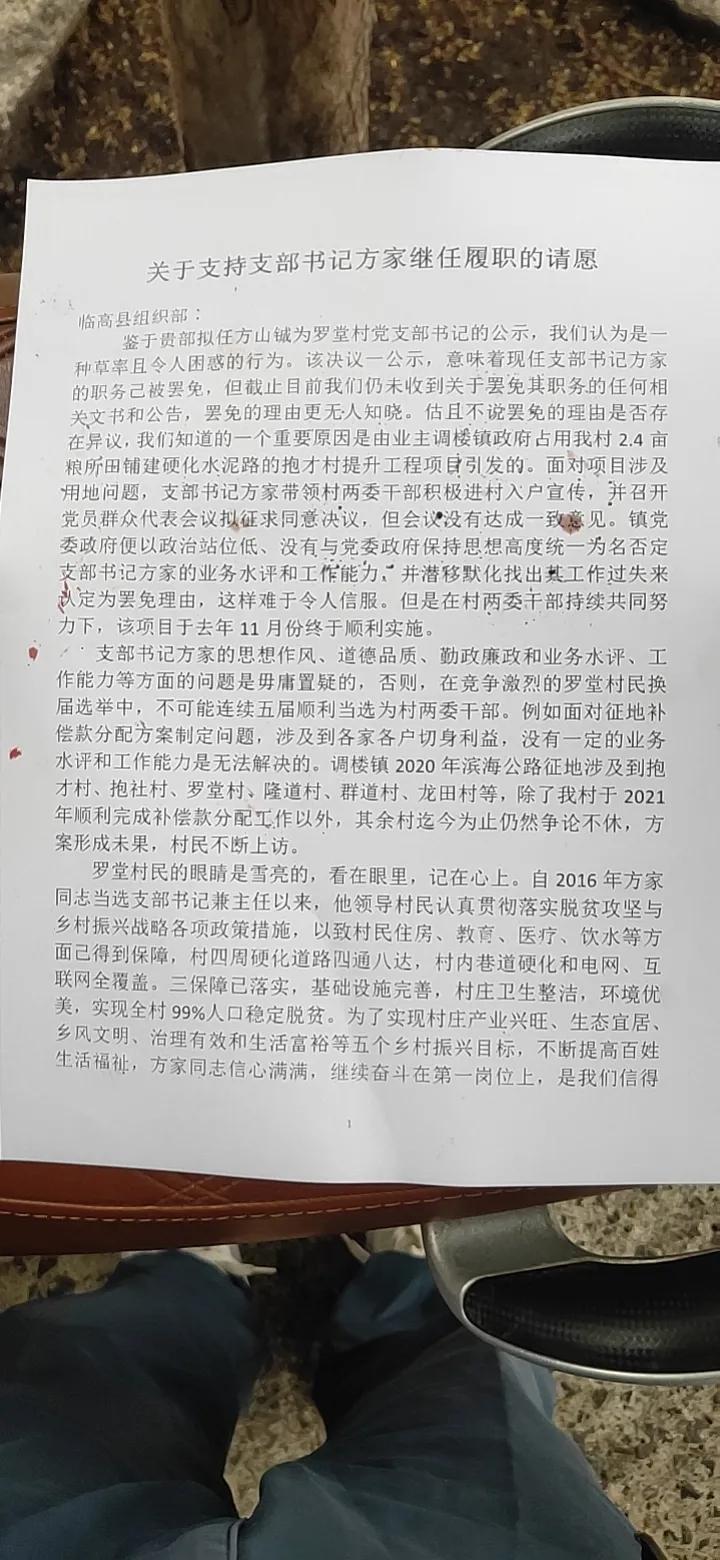 关于支持支部书记方家继任履职的请愿
临高县组织部：
鉴于贵部拟任方山铖为罗堂村党支部书记的公示，我们认为是一
种草率且令人困惑的行为。该决议一公示，意味着现任支部书记方家
的职务己被罢免，但截止目前我们仍未收到关于罢免其职务的任何相
关文书和公告，罢免的理由更无人知晓。估且不说罢免的理由是否存
在异议，我们知道的一个重要原因是由业主调楼镇政府占用我村 2.4 亩
粮所田铺建硬化水泥路的抱才村提升工程项目引发的。面对项目涉及
用地问题，支部书记方家带领村两委干部积极进村入户宣传，并召开
党员群众代表会议拟征求同意决议，但会议没有达成一致意见。镇党
委政府便以政治站位低、没有与党委政府保持思想高度统一为名否定
支部书记方家的业务水评和工作能力，并潜移默化找出其工作过失来
认定为罢免理由，这样难于令人信服。但是在村两委干部持续共同努
力下，该项目于去年 11 月份终于顺利实施。
支部书记方家的思想作风、道德品质、勤政廉政和业务水评、工
作能力等方面的问题是毋庸置疑的，否则，在竞争激烈的罗堂村民换
届选举中，不可能连续五届顺利当选为村两委干部。例如面对征地补
偿款分配方案制定问题，涉及到各家各户切身利益，没有一定的业务
水评和工作能力是无法解决的。调楼镇 2020 年滨海公路征地涉及到抱
才村、抱社村、罗堂村、隆道村、群道村、龙田村等，除了我村于 2021
年顺利完成补偿款分配工作以外，其余村迄今为止仍然争论不休，方
案形成未果，村民不断上访。
罗堂村民的眼睛是雪亮的，看在眼里，记在心上。自 2016 年方家
同志当选支部书记兼主任以来，他领导村民认真贯彻落实脱贫攻坚与
乡村振兴战略各项政策措施，以致村民住房、教育、医疗、饮水等方
面己得到保障，村四周硬化道路四通八达，村内巷道硬化和电网、互
联网全覆盖。三保障已落实，基础设施完善，村庄卫生整洁，环境优
美，实现全村 99%人口稳定脱贫。为了实现村庄产业兴旺、生态宜居、
乡风文明、治理有效和生活富裕等五个乡村振兴目标，不断提高百姓
生活福祉，方家同志信心满满，继续奋斗在第一岗位上，是我们信得
1